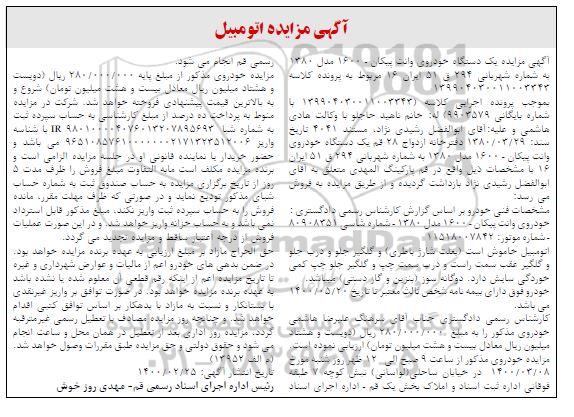 آگهی مزایده اتومبیل
آگهی مزایده یک دستگاه خودروی وانت پیکان - ۱۶۰۰ مدل ۱۳۸۰
به شماره شهربانی ۲۹۴ ق ۵۱ ایران ۱۶ مربوط به پرونده کلاسه
۱۳۹۹۰۴۰۳۰۰۱۱۰۰۳۳۴۳
بموجب پرونده اجرایی کلاسه (۱۳۹۹۰۴۰۳۰۰۱۱۰۰۳۳۴۳ با
شماره بایگانی ۹۹۰۳۵۷۹) له: خانم ناهید حاجلو با وکالت هادی
هاشمی و علیه: آقای ابوالفضل رشیدی نژاد، مستند ۴۰۴۱ تاریخ
سند: ۱۳۸۰/۰۳/۲۹ دفترخانه ازدواج ۲۸ قم یک دستگاه خودروی
وانت پیکان - ۱۶۰۰ مدل ۱۳۸۰ به شماره شهربانی ۲۹۴ ق ۵۱ ایران
۱۶ با مشخصات ذیل واقع در قم پارکینگ المهدی متعلق به آقای
ابوالفضل رشیدی نژاد بازداشت گردیده و از طریق مزایده به فروش
می رسد:
مشخصات فنی خودرو بر اساس گزارش کارشناس رسمی دادگستری :
خودروی وانت پیکان - ۱۶۰۰ مدل ۱۳۸۰ - شماره شاسی ۸۰۹۰۸۳۵۱
- شماره موتور: ۱۱۵۱۸۰۰۷۸۴۲
اتومبیل خاموش است (بعلت شارژ باطری) و گلگیر جلو و درب جلو
و گلگیر عقب سمت راست و درب سمت چپ و گلگیر جلو چپ کمی
خوردگی سایش دارد. دوگانه سوز (بنزین و گاز دستی) میباشد.
خودرو فوق دارای بیمه نامه شخص ثالث معتبر تا تاریخ ۱۴۰۰/۰۵/۲۰
می باشد.
کارشناس رسمی دادگستری جناب آقای سرهنگ علیرضا هاشمی
خودروی مذکور را به مبلغ ۲۸۰/۰۰۰/۰۰۰ ریال (دویست و هشتاد
میلیون ریال معادل بیست و هشت میلیون تومان) ارزیابی نموده است.
مزایده خودروی مذکور از ساعت ۹ صبح الی ۱۲ ظهر روز شنبه مورخ
۱۴۰۰/۰۳/۰۸ در خیابان ساحلی(لواسانی) نبش کوچه ۷ طبقه
فوقانی اداره ثبت اسناد و املاک بخش یک قم - اداره اجرای اسناد
رسمی قم انجام می شود.
مزایده خودروی مذکور از مبلغ پایه ۲۸۰/۰۰۰/۰۰۰ ریال (دویست
و هشتاد میلیون ریال معادل بیست و هشت میلیون تومان) شروع و
به بالاترین قیمت پیشنهادی فروخته خواهد شد. شرکت در مزایده
منوط به پرداخت ده درصد از مبلغ کارشناسی به حساب سپرده ثبت
به شماره شبا IR ۹۸۰۱۰۰۰۰۴۰۷۶۰۱۳۲۰۷۸۹۵۶۹۳ با شناسه
واریز ۹۶۵۱۰۸۵۷۶۱۰۰۰۰۰۰۲۱۷۱۳۲۳۵۱۲۰۰۶ می باشد و
حضور خریدار یا نماینده قانونی او در جلسه مزایده الزامی است و
برنده مزایده مکلف است مابه التفاوت مبلغ فروش را ظرف مدت ۵
روز از تاریخ برگزاری مزایده به حساب صندوق ثبت به شماره حساب
شبای مذکور تودیع نماید و در صورتی که ظرف مهلت مقرر، مانده
فروش را به حساب سپرده ثبت واریز نکند، مبلغ مذکور قابل استرداد
نمی باشد و به حساب خزانه واریز خواهد شد. و در این صورت عملیات
فروش از درجه اعتبار ساقط و مزایده تجدید می گردد.
حق الحراج مازاد بر مبلغ ارزیابی به عهده برنده مزایده خواهد بود.
در ضمن بدهی های خودرو اعم از مالیات و عوارض شهرداری و غیره
تا تاریخ مزایده اعم از اینکه رقم قطعی آن معلوم شده یا نشده باشد
به عهده برنده مزایده خواهد بود. در صورت توافق بر واریز غیرنقدی
با بستانکار و نسبت به مازاد با بدهکار بر اساس توافق کتبی اقدام
خواهد شد. و چنانچه روز مزایده مصادف با تعطیل رسمی غیرمترقبه
گردد، مزایده روز اداری بعد از تعطیل در همان محل و ساعت انجام
می شود و حقوق دولتی و حق مزایده طبق مقررات وصول خواهد شد.
(م الف ۱۳۹۵۲)
تاریخ انتشار آگهی: ۱۴۰۰/۰۲/۲۵
رئیس اداره اجرای اسناد رسمی قم- مهدی روز خوش